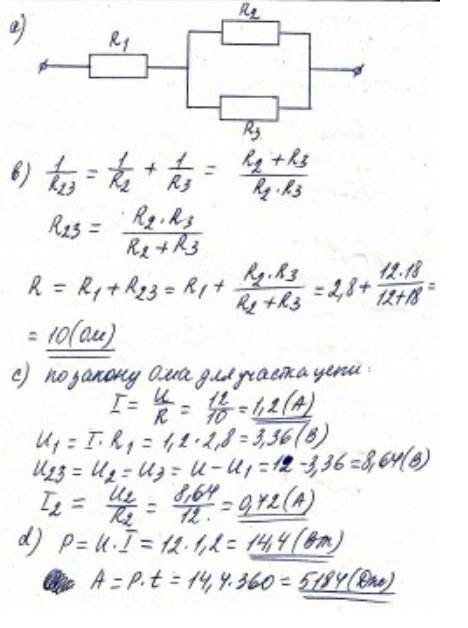 a)
R1
R2
R3
в) 1/R23 = 1/R2 + 1/R3 = (R2 + R3)/(R2 · R3)
R23 = (R2 · R3)/(R2 + R3)
R = R1 + R23 = R1 + (R2 · R3)/(R2 + R3) = 2,8 + (12·18)/(12+18) =
= 10 (Ом)
c) по закону Ома для участка цепи:
I = U/R = 12/10 = 1,2 (А)
U1 = I · R1 = 1,2 · 2,8 = 3,36 (В)
U23 = U2 = U3 = U - U1 = 12 - 3,36 = 8,64 (В)
I2 = U2/R2 = 8,64/12 = 0,72 (А)
d) P = U · I = 12 · 1,2 = 14,4 (Вт)
A = P · t = 14,4 · 360 = 5184 (Дж)